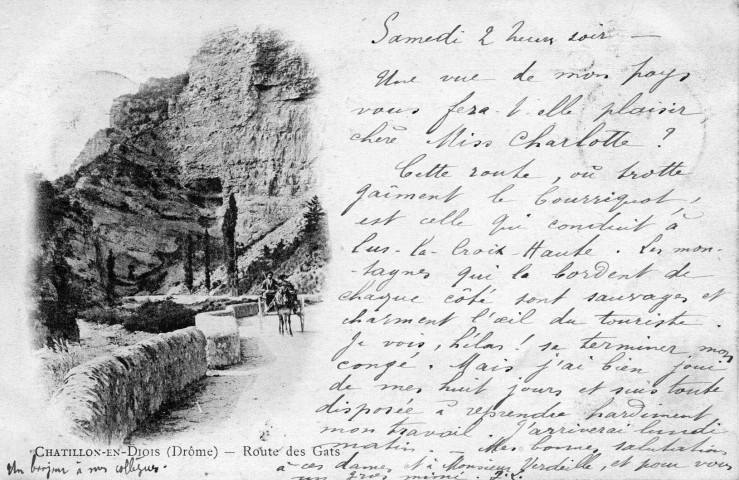 Samedi 2 heures soir —
Une vue de mon pays
vous fera-t-elle plaisir,
chère Miss Charlotte ?
Cette route, où trotte
gaîment le bourriquot,
est celle qui conduit à
Lus-la-Croix-Haute. Les mon-
-tagnes qui la bordent de
chaque côté sont sauvages et
charment l'œil du touriste.
Je vois, hélas ! se terminer mon
congé. Mais j'ai bien joui
de mes huit jours et suis toute
disposée à reprendre hardiment
mon travail. J'arriverai lundi
matin. — Mes bonnes salutations
à ces dames et à Monsieur Verdeille, et pour vous
un gros mimi.
CHATILLON-EN-DIOIS (Drôme) — Route des Gats
Un bonjour à nos collègues.